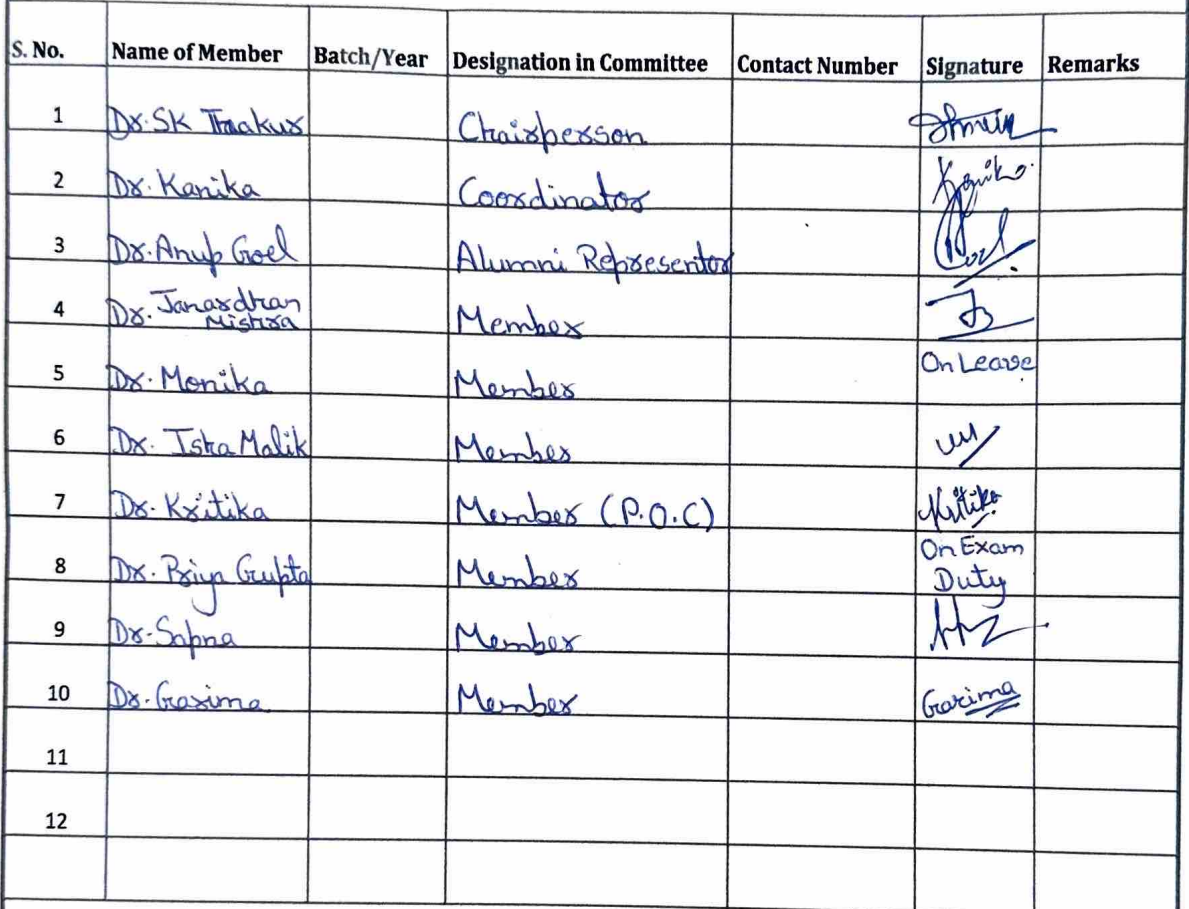 S. No. Name of Member Batch/Year Designation in Committee Contact Number Signature Remarks
1 Dr. SK Thakur Chairperson
2 Dr. Kanika Coordinator Kanika
3 Dr. Anup Goel Alumni Representor Goel
4 Dr. Janardhan Mishra Member
5 Dr. Monika Member On Leave
6 Dr. Isha Malik Member
7 Dr. Kritika Member (P.O.C) Kritika
8 Dr. Priya Gupta Member On Exam Duty
9 Dr. Sapna Member
10 Dr. Garima Member Garima
11
12